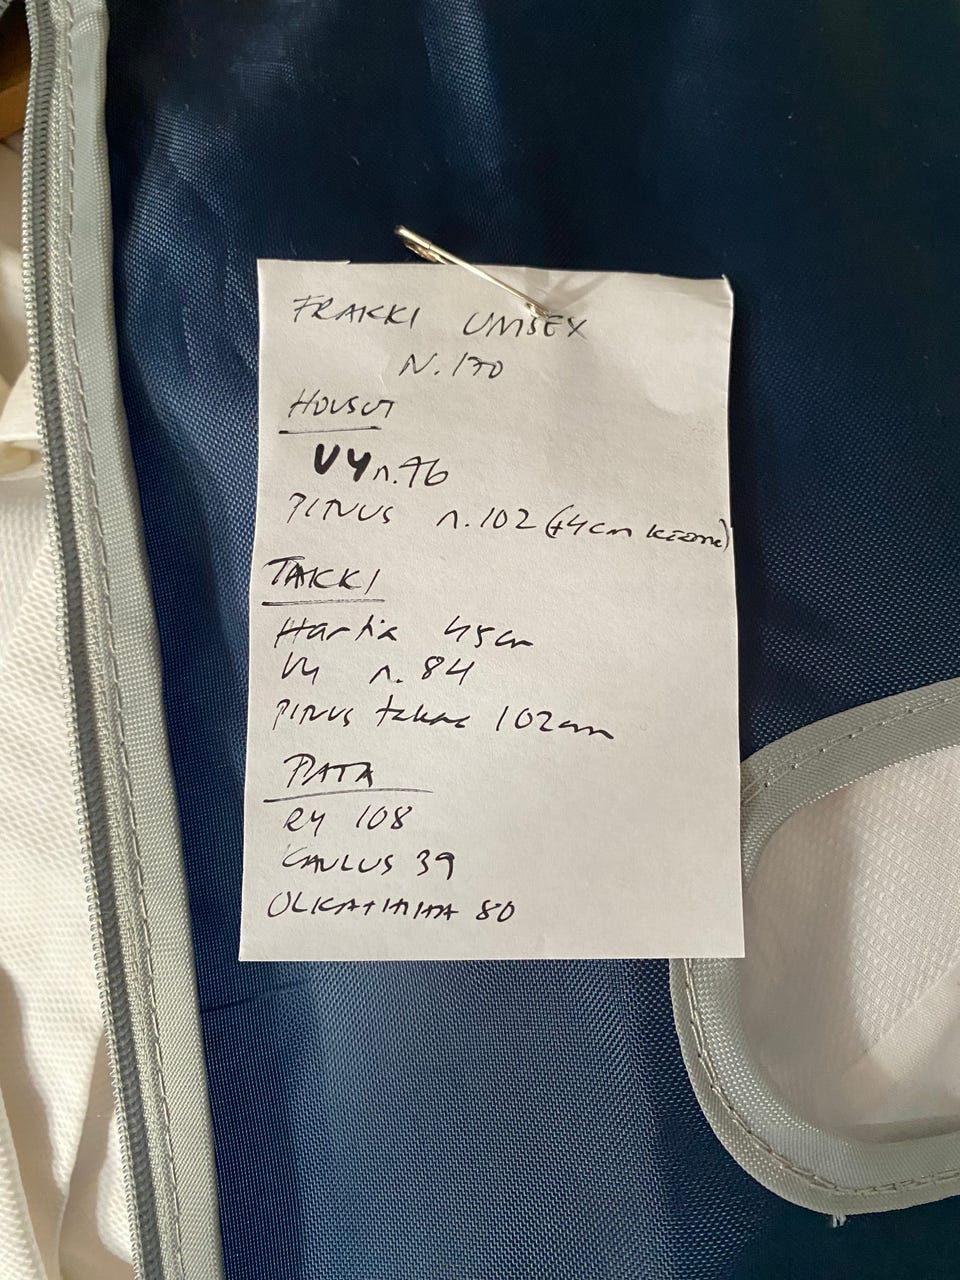 FRAKKI UNISEX
N. 170
HOUSUT
VY n. 76
PITUUS n. 102 (+4cm
TAKKI
Hartia 45cm
VY n. 84
PITUUS takaa 102cm
PAITA
RY 108
KAULUS 39
OLKA+HIHA 80